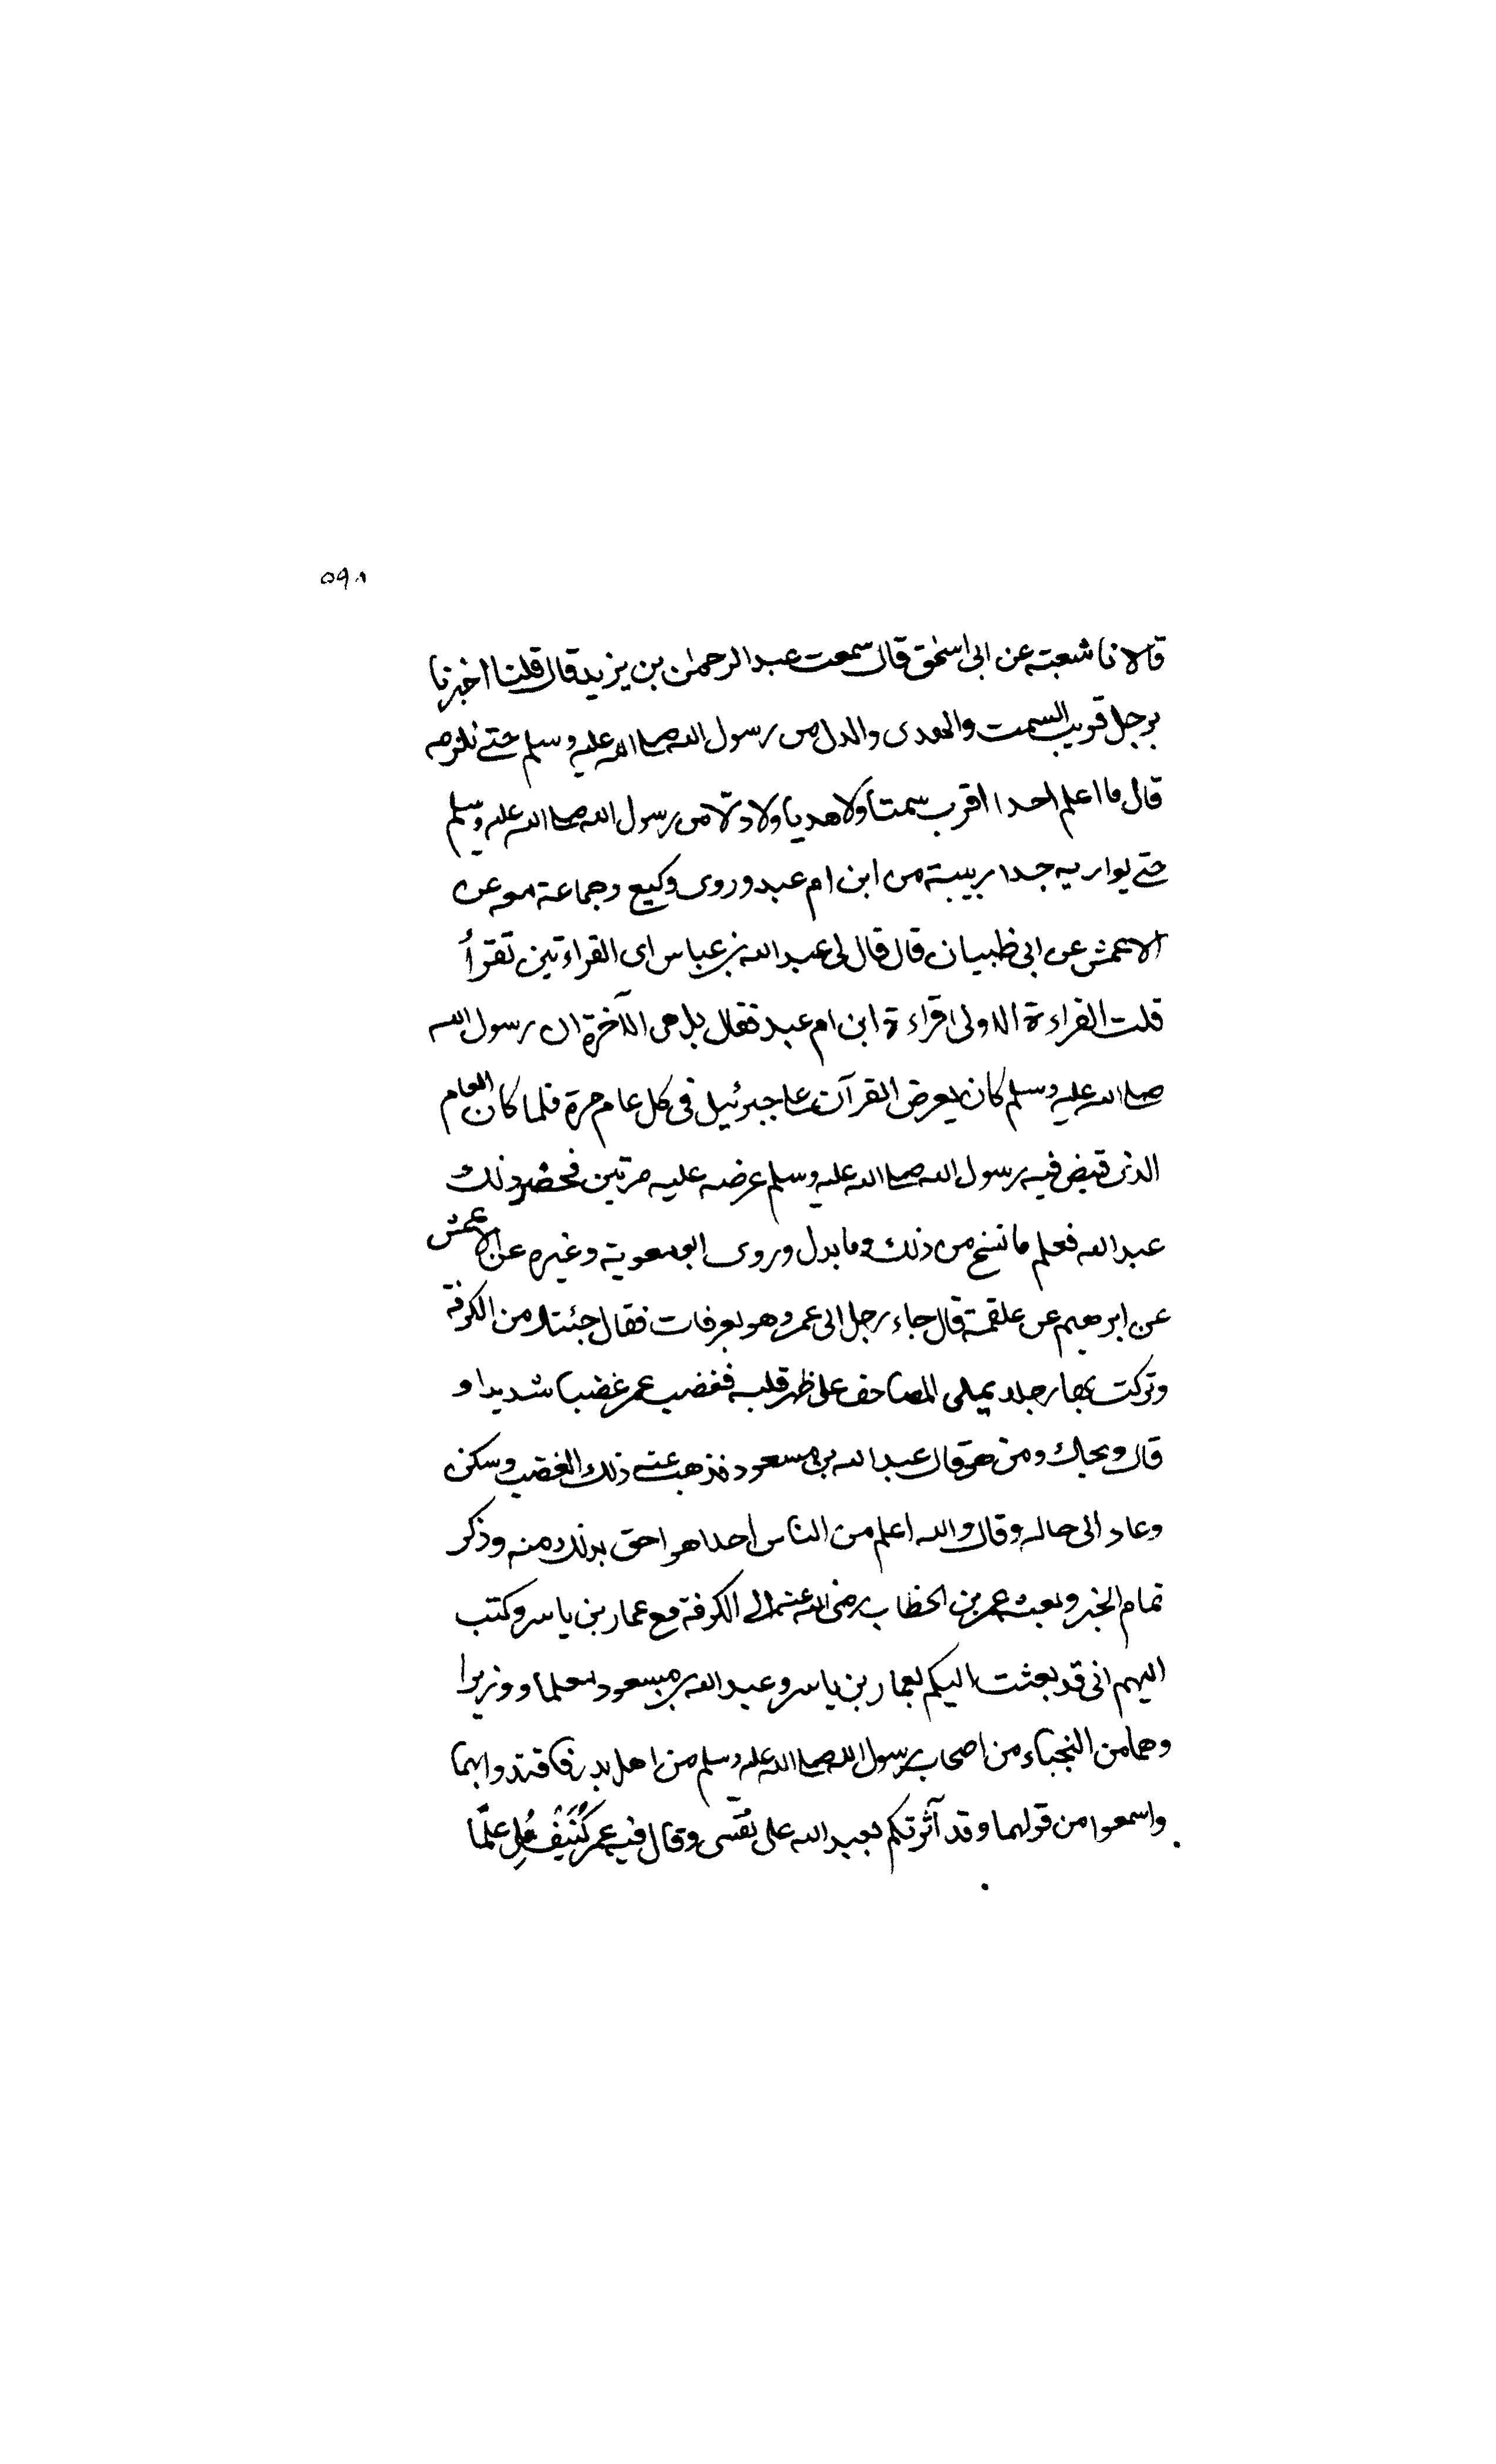 ٥٩٨
قالا نا شعبة عن ابى اسحٰق قال سمعت عبد الرحمٰن بن يزيد قال قلنا اخبرنا
برجل قريب السمت والهدى والدل من رسول الله صلى الله عليه وسلم حتى نلزمه
قال ما اعلم احدا اقرب سمتا ولا هديا ولا دلّا من رسول الله صلى الله عليه وسلم
حتى يواريه جدار بيته من ابن ام عبد وروى وكيع وجماعة معه عن
الاعمش عن ابى ظبيان قال قال لى عبد الله بن عباس اى القراءتين تقرأ
قلت القراءة الاولى قراءة ابن ام عبد فقال بل هى الآخرة ان رسول الله
صلى الله عليه وسلم كان يعرض القرآن على جبرئيل فى كل عام مرة فلما كان العام
الذى قبض فيه رسول الله صلى الله عليه وسلم عرضه عليه مرتين فحضر ذلك
عبد الله فعلم ما نسخ من ذلك وما بدل وروى ابو معوية وغيره عن الاعمش
عن ابرهيم عن علقمة قال جاء رجل الى عمر وهو بعرفات فقال جئتك من الكوفة
وتركت بها رجلا يملى المصاحف على ظهر قلبه فغضب عمر غضبا شديدا و
قال ويحك ومن هو قال عبد الله بن مسعود فذهب عنه ذلك الغضب وسكن
وعاد الى حاله وقال والله اعلم من الناس احدا هو احق بذلك منه وذكر
تمام الخبر وبعث عمر بن الخطاب رضى الله عنه الى الكوفة مع عمار بن ياسر وكتب
اليهم انى قد بعثت اليكم بعمار بن ياسر وعبد الله بن مسعود معلما ووزيرا
وهما من النجباء من اصحاب رسول الله صلى الله عليه وسلم من اهل بدر فاقتدوا بهما
واسمعوا من قولهما وقد آثرتكم بعبد الله على نفسى وقال فيه عمر كُنَيْفٌ مُلِئ علمًا